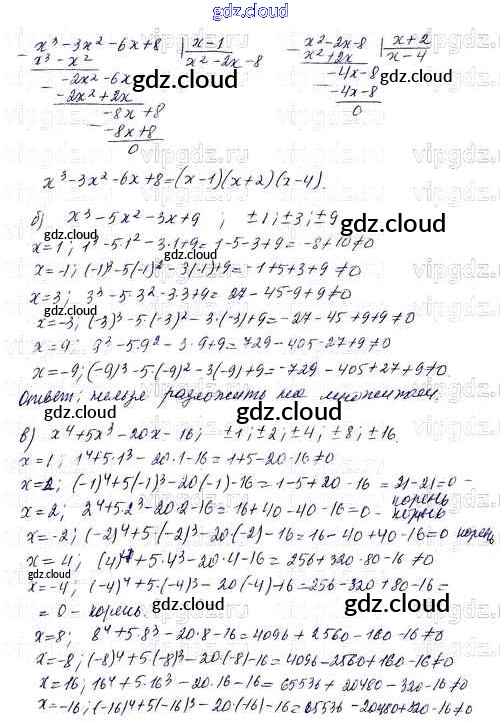 gdz.cloud
x³-3x²-6x+8 | x-1 x²-2x-8 | x+2
x³-x² x²-2x-8 x²+2x x-4
-2x²-6x -4x-8
-2x²+2x -4x-8
-8x+8 0
-8x+8
0
x³-3x²-6x+8=(x-1)(x+2)(x-4).
б) x³-5x²-3x+9 ; ±1; ±3; ±9
x=1; 1³-5·1²-3·1+9=1-5-3+9=-8+10≠0
x=-1; (-1)³-5(-1)²-3(-1)+9=-1+5+3+9≠0
x=3; 3³-5·3²-3·3+9=27-45-9+9≠0
x=-3; (-3)³-5·(-3)²-3·(-3)+9=-27-45+9+9≠0
x=9; 9³-5·9²-3·9+9=729-405-27+9≠0
x=-9; (-9)³-5·(-9)²-3(-9)+9=-729-405+27+9≠0.
Ответ: нельзя разложить на множители.
в) x⁴+5x³-20x-16; ±1; ±2; ±4; ±8; ±16.
x=1; 1⁴+5·1³-20·1-16=1+5-20-16≠0
x=-1; (-1)⁴+5(-1)³-20(-1)-16=1-5+20-16=21-21=0- корень
x=2; 2⁴+5·2³-20·2-16=16+40-40-16=0- корень
x=-2; (-2)⁴+5·(-2)³-20(-2)-16=16-40+40-16=0 корень
x=4; (4)⁴+5·4³-20·4-16=256+320-80-16≠0
x=-4; (-4)⁴+5·(-4)³-20(-4)-16=256-320+80-16=
=0-корень.
x=8; 8⁴+5·8³-20·8-16=4096+2560-160-16≠0
x=-8; (-8)⁴+5·(-8)³-20·(-8)-16=4096-2560+160-16≠0.
x=16; 16⁴+5·16³-20·16-16=65536+20480-320-16≠0
x=-16; (-16)⁴+5(-16)³-20·(-16)-16=65536-20480+320-16≠0